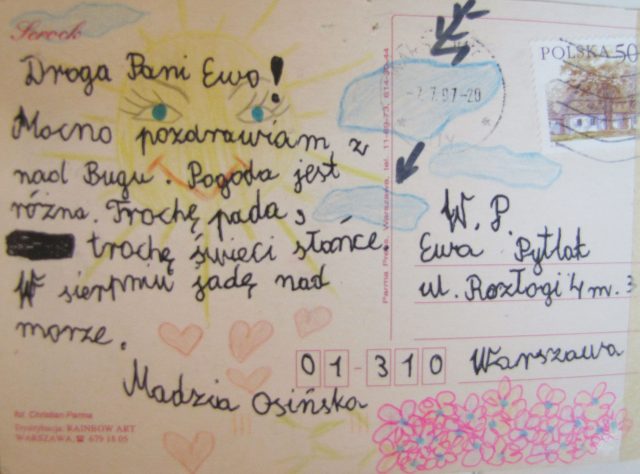 Serock
Droga Pani Ewo!
Mocno pozdrawiam z
nad Bugu. Pogoda jest
różna. Trochę pada,
trochę świeci słońce.
W sierpniu jadę nad
morze.
Madzia Osińska
fot. Christian Parma
Dystrybucja: RAINBOW ART
WARSZAWA, ☎ 679 18 05
Parma Press, Warszawa, tel.
POLSKA 50
-7.7.97-20
W. P.
Ewa Pytlak
ul. Rozłogi 4 m. 3
01-310 Warszawa